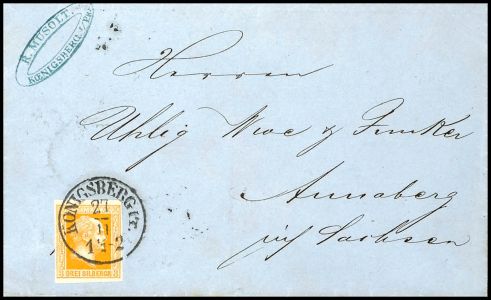 R. MUSOLT.
KOENIGSBERG i/PR
Herren
Uhlig Wwe & Funker
Annaberg
in Sachsen
KÖNIGSBERG Pr.
27
11
1-2
DREI SILBERGR.